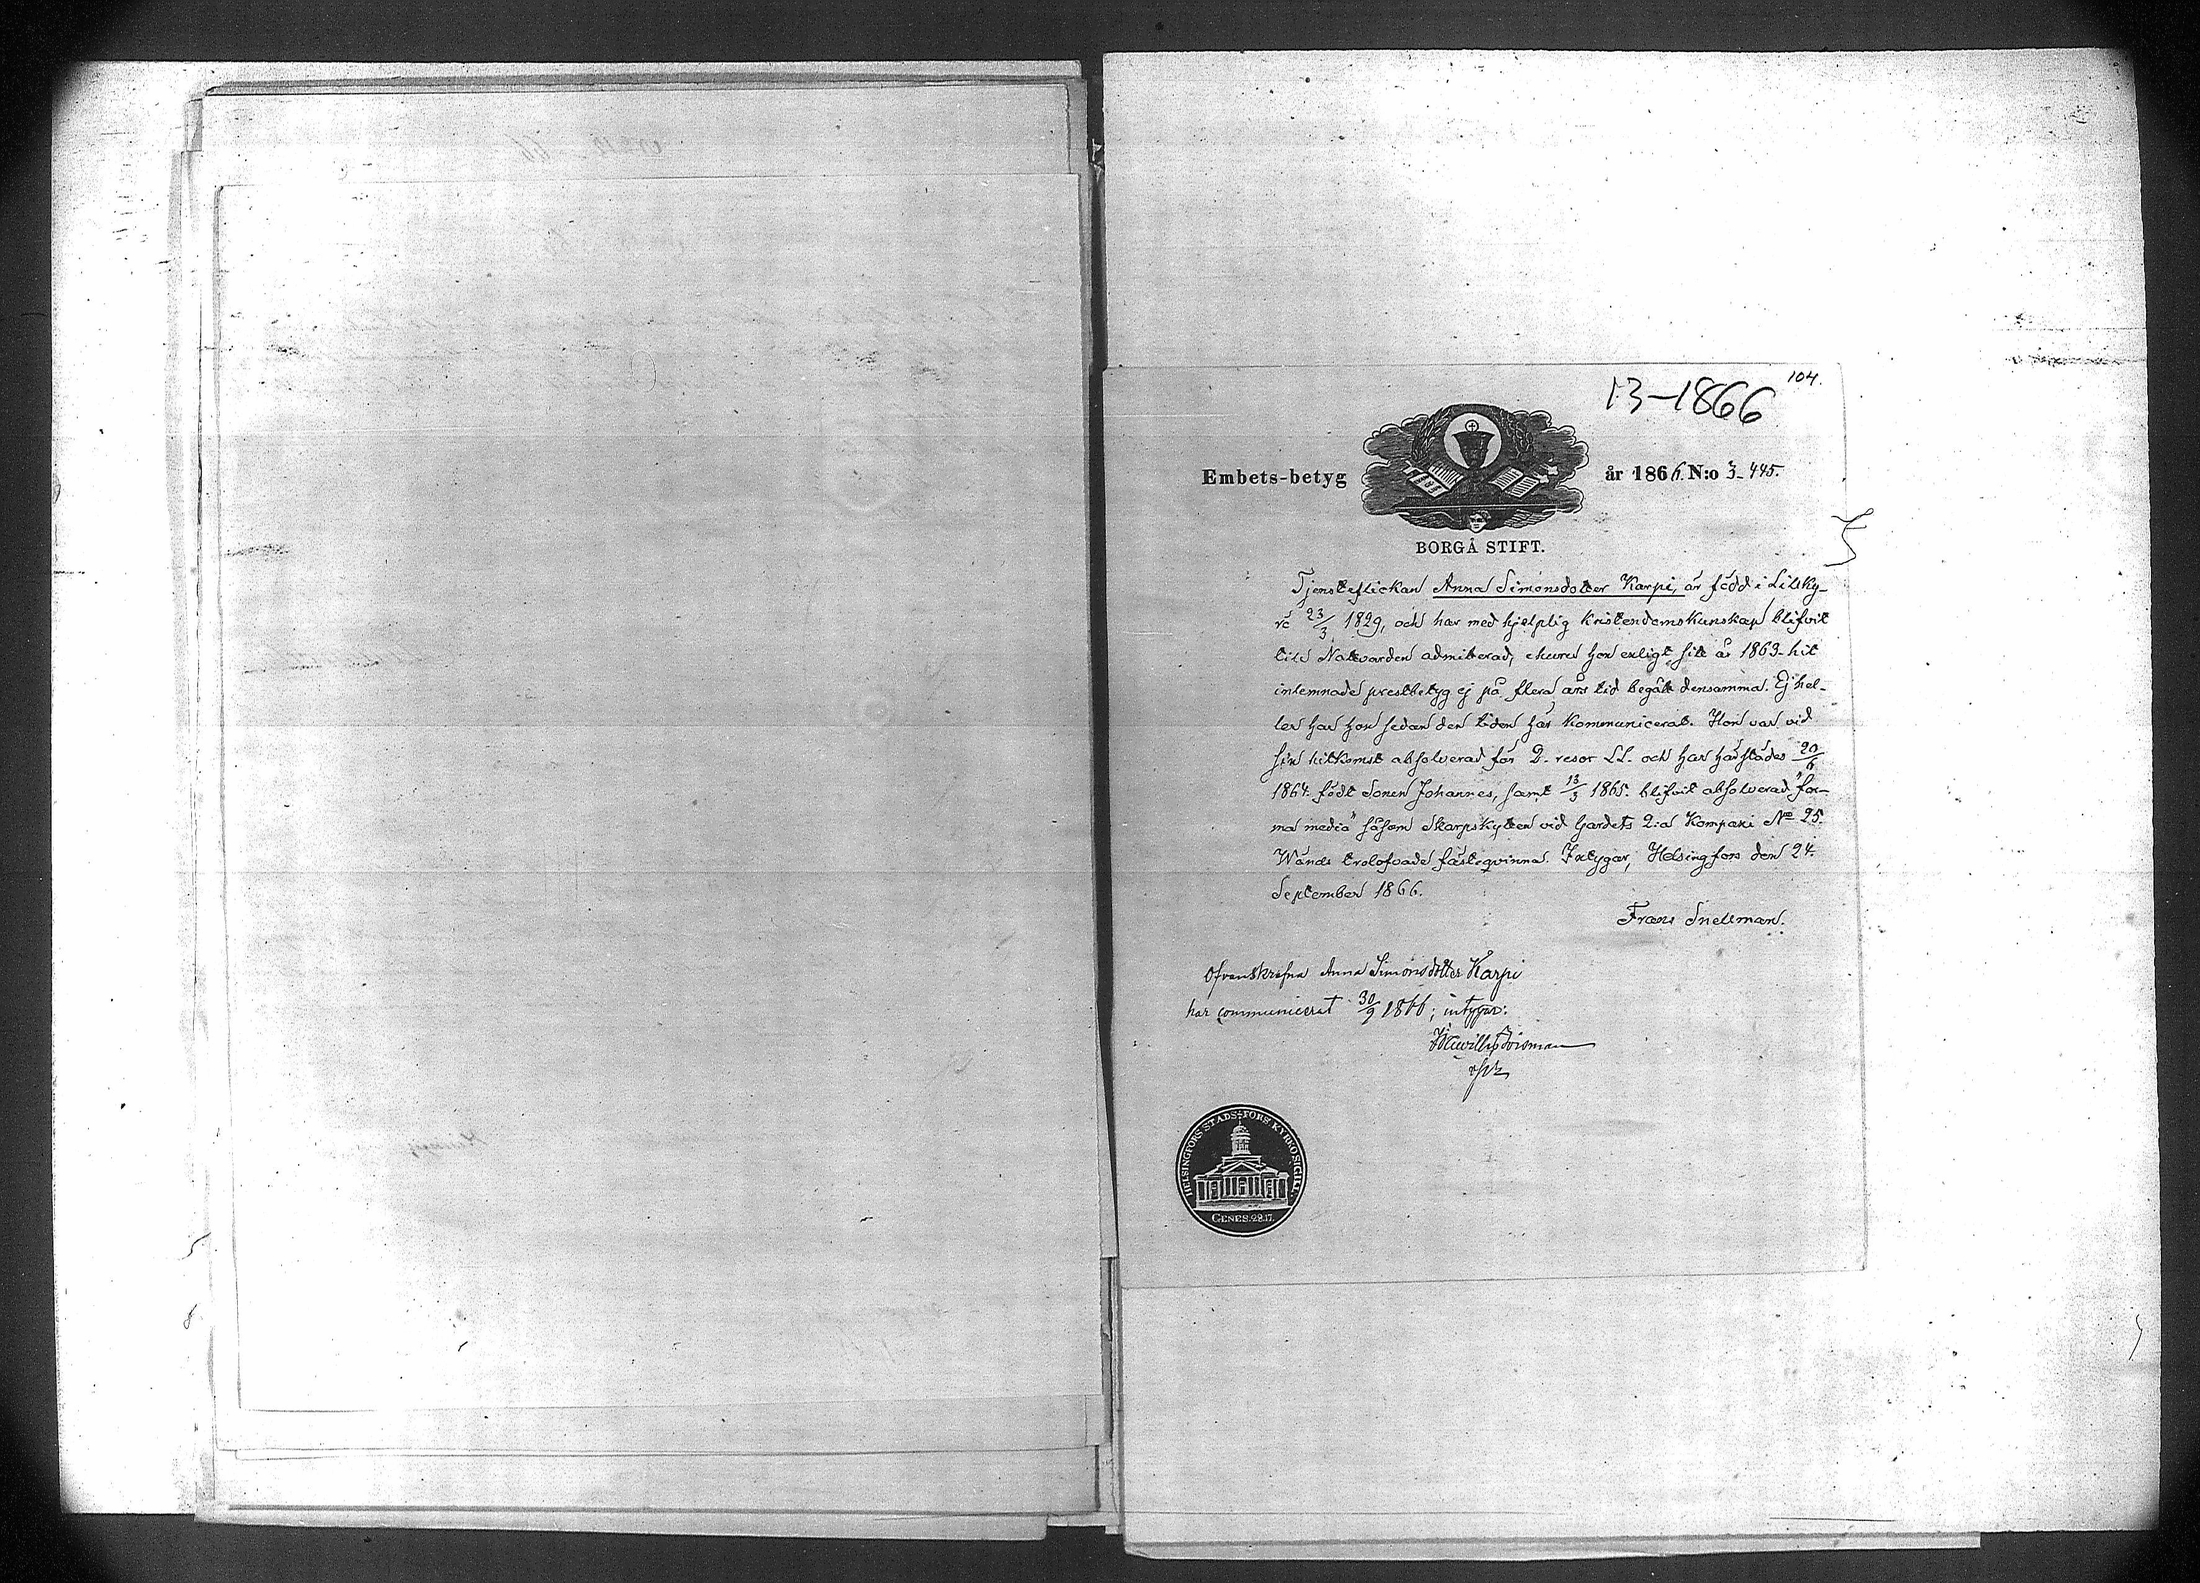 104.
13-1866
Embets-betyg år 1866. N:o 3-445.
BORGÅ STIFT.
Tjensteflickan Anna Simonsdotter Karpi, är född i Lillky-
ro 23/3 1829, och har med hjelplig kristendomskunskap blifvit
till Nattvarden admitterad, ehuru hon enligt sitt år 1863 hit
inlemnade prestbetyg ej på flera års tid begått densamma. Ej hel-
ler har hon sedan den tiden här kommunicerat. Hon var vid
sin hitkomst absolverad för 2. resor LL. och har härstädes 20/6
1864 födt sonen Johannes, samt 13/3 1865 blifvit absolverad "for-
ma media" såsom Skarpskytten vid Gardets 2:a Kompani No 25.
Wänds trolofvade fästeqvinna. Intygar, Helsingfors den 24.
September 1866.
Frans Snellman.
Ofvanskrefna Anna Simonsdotter Karpi
har communicerat 30/9 1866; intygar:
HELSINGFORS STADS-FÖRS: KYRKOSIGILL.
GENES. 28.17.